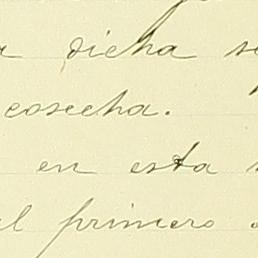 dicha
cosecha.
en esta
primero